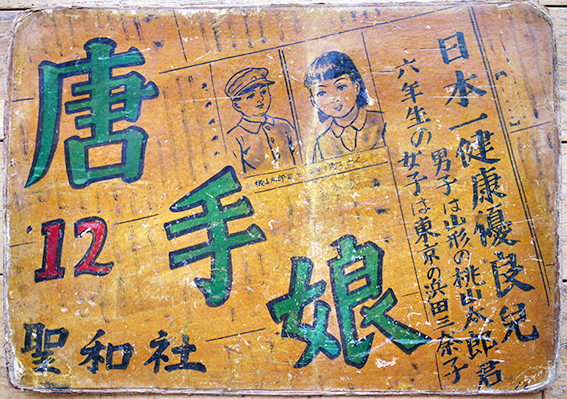 唐手娘
12
聖和社
日本一健康優良児
男子は山形の桃山太郎君
六年生の女子は東京の浜田三奈子